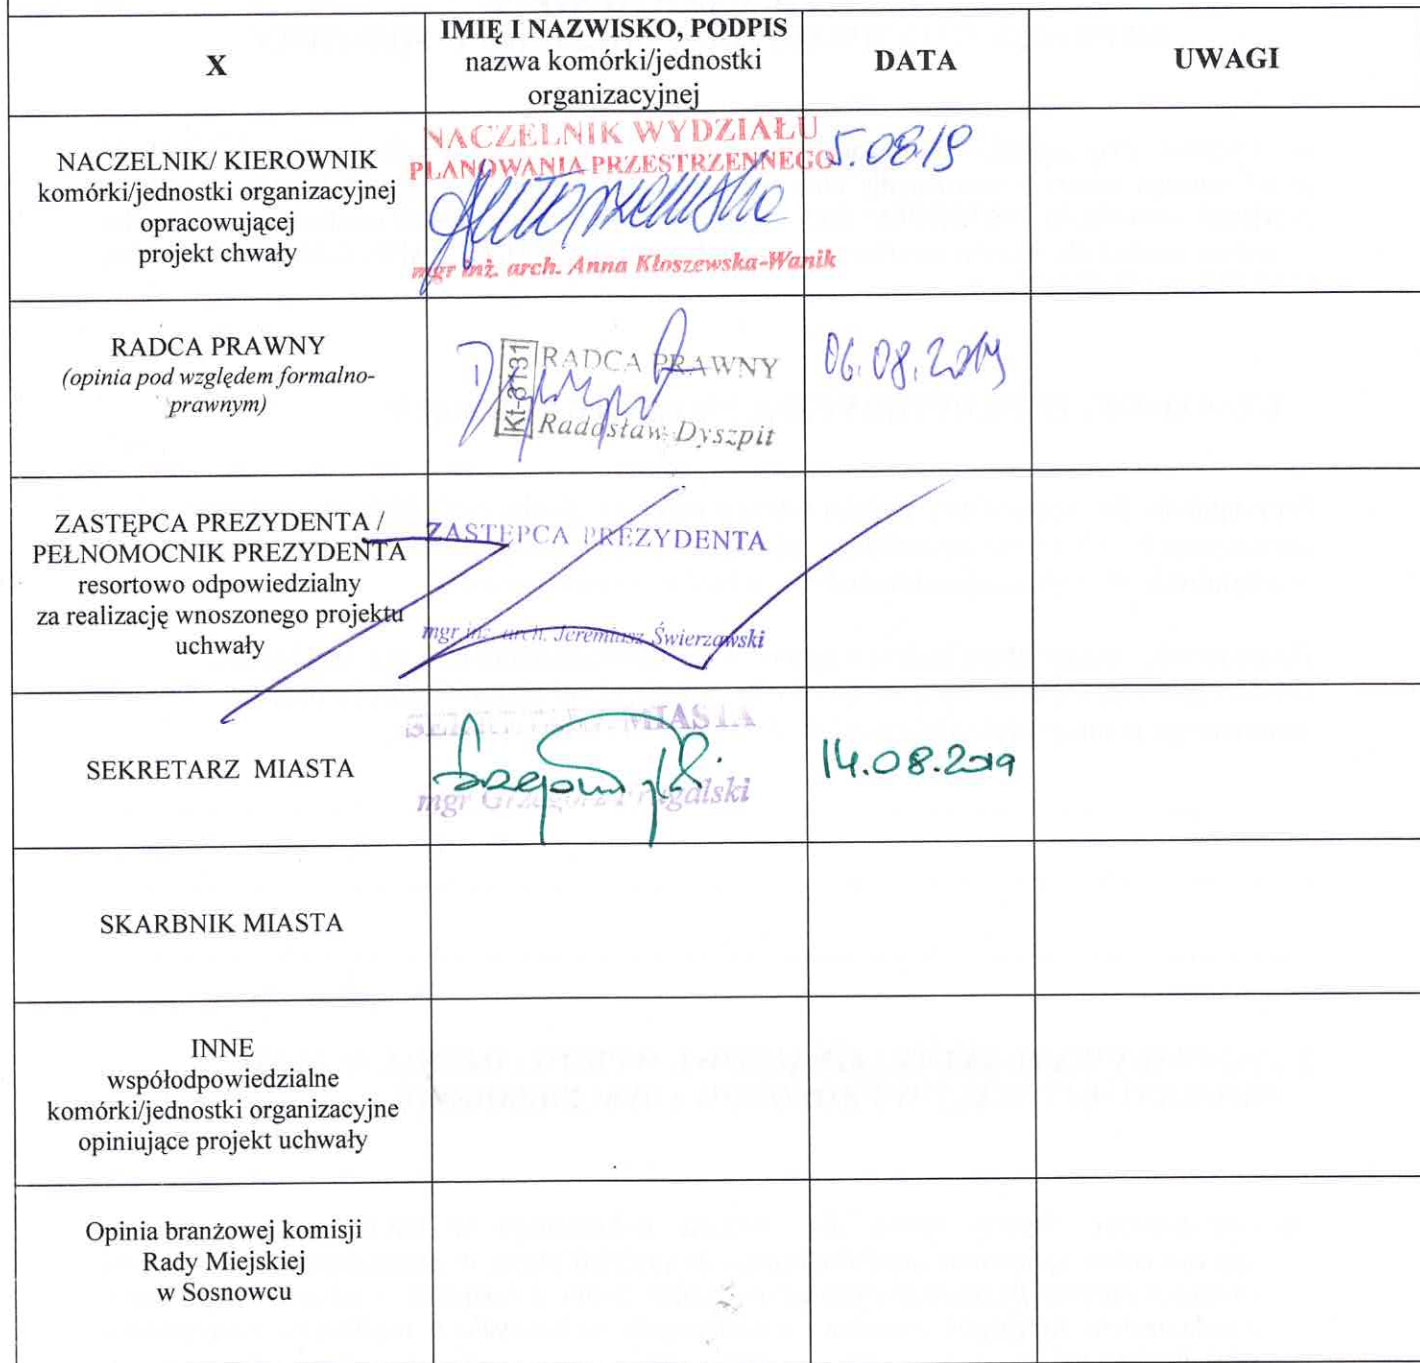 X
IMIĘ I NAZWISKO, PODPIS
nazwa komórki/jednostki
organizacyjnej
DATA
UWAGI
NACZELNIK/ KIEROWNIK
komórki/jednostki organizacyjnej
opracowującej
projekt chwały
NACZELNIK WYDZIAŁU
PLANOWANIA PRZESTRZENNEGO
mgr inż. arch. Anna Kłoszewska-Wanik
5.08.19
RADCA PRAWNY
(opinia pod względem formalno-
prawnym)
Kt-3131
RADCA PRAWNY
Radosław Dyszpit
06.08.2019
ZASTĘPCA PREZYDENTA /
PEŁNOMOCNIK PREZYDENTA
resortowo odpowiedzialny
za realizację wnoszonego projektu
uchwały
ZASTĘPCA PREZYDENTA
mgr inż. arch. Jeremiasz Świerzawski
SEKRETARZ MIASTA
SEKRETARZ MIASTA
mgr Grzegorz
14.08.2019
SKARBNIK MIASTA
INNE
współodpowiedzialne
komórki/jednostki organizacyjne
opiniujące projekt uchwały
Opinia branżowej komisji
Rady Miejskiej
w Sosnowcu